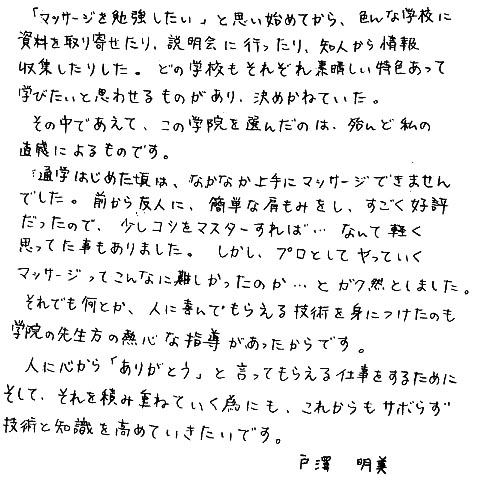 「マッサージを勉強したい」と思い始めてから、色んな学校に
資料を取り寄せたり、説明会に行ったり、知人から情報
収集したりした。どの学校もそれぞれ素晴しい特色あって
学びたいと思わせるものがあり、決めかねていた。
その中であえて、この学院を選んだのは、殆んど私の
直感によるものです。
通学はじめた頃は、なかなか上手にマッサージできません
でした。前から友人に、簡単な肩もみをし、すごく好評
だったので、少しコシをマスターすれば…なんて軽く
思ってた事もありました。しかし、プロとしてヤッていく
マッサージってこんなに難しかったのか…とガク然としました。
それでも何とか、人に喜んでもらえる技術を身につけたのも
学院の先生方の熱心な指導があったからです。
人に心から「ありがとう」と言ってもらえる仕事をするために
そして、それを積み重ねていく為にも、これからもサボらず
技術と知識を高めていきたいです。
戸澤 明美